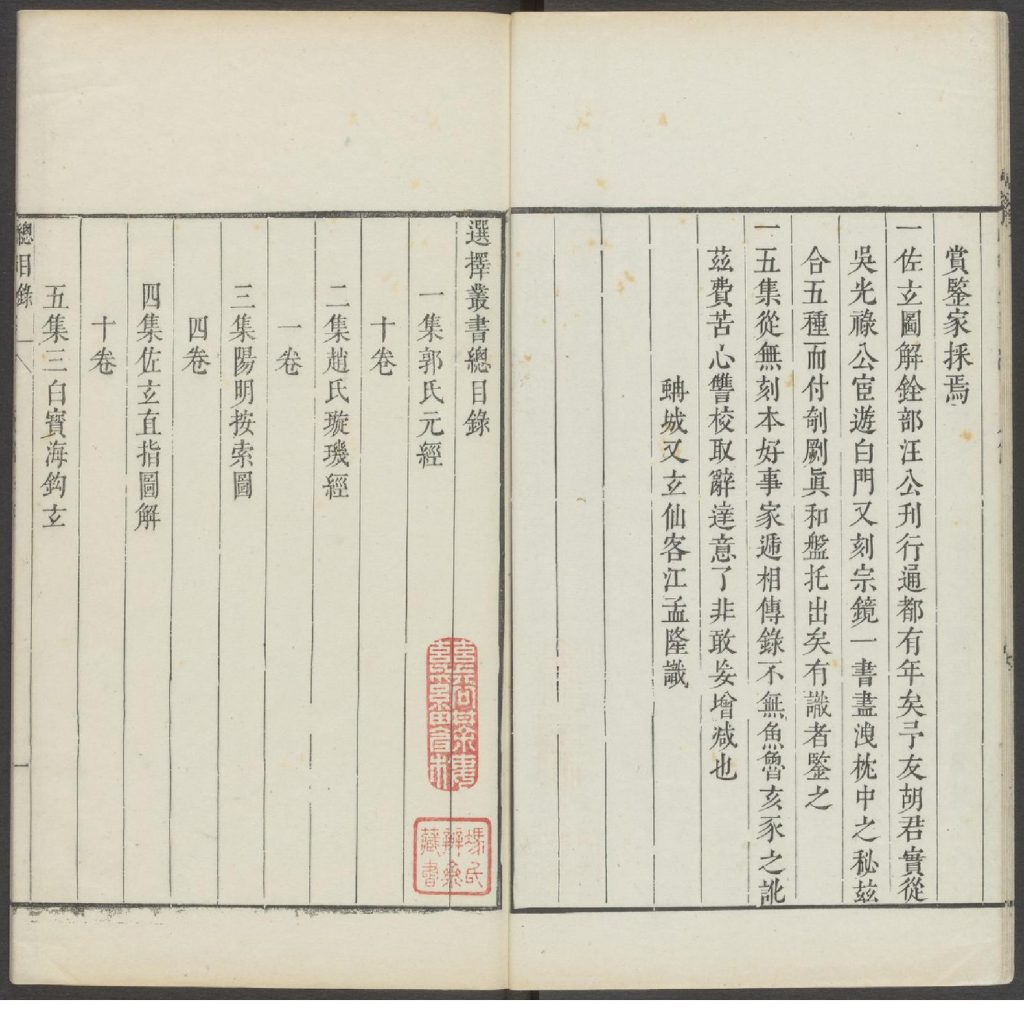 賞鑒家採焉
一佐玄圖解銓部汪公刋行通都有年矣予友胡君實從
吳光祿公宦遊白門又刻宗鏡一書盡洩枕中之秘茲
合五種而付剞劂眞和盤托出矣有識者鑒之
一五集從無刻本好事家遞相傳錄不無魚魯亥豕之訛
茲費苦心讐校取辭達意了非敢妄增减也
蚺城又玄仙客江孟隆識
選擇叢書總目錄
一集郭氏元經
十卷
二集趙氏璇璣經
一卷
三集陽明按索圖
四卷
四集佐玄直指圖解
十卷
五集三白寳海鈎玄
總目錄
一
馮氏
辨齋
藏書